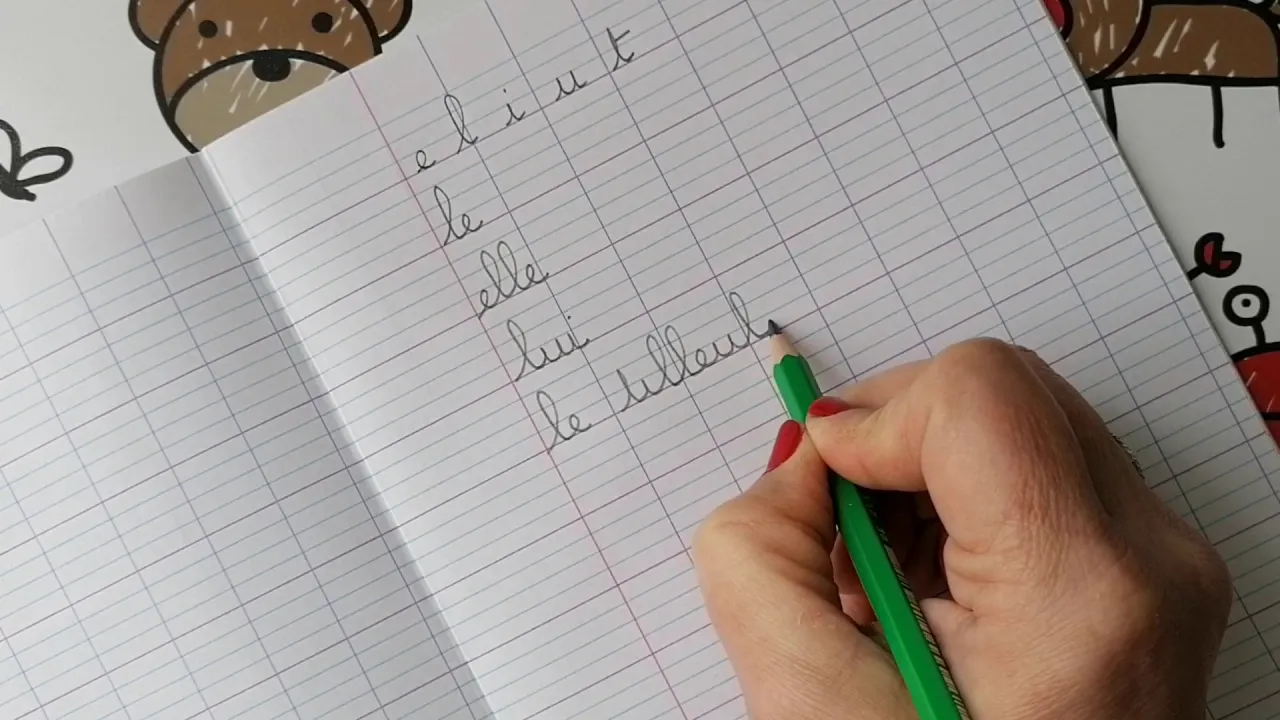 e l i u t
le
elle
lui
le tilleul